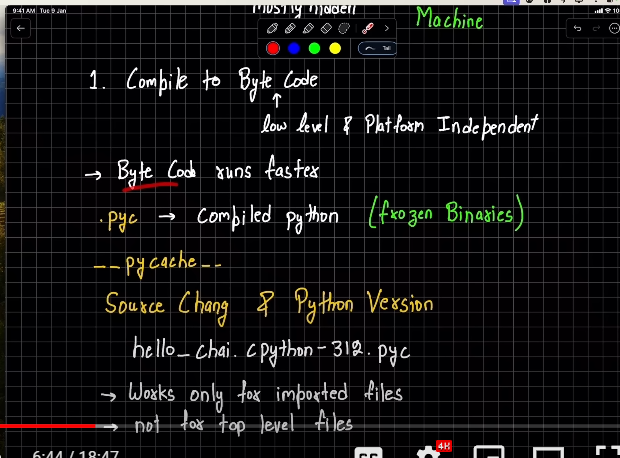 9:41 AM Tue 9 Jan
mostly hidden
Machine
1. Compile to Byte Code
↑
low level & Platform Independent
→ Byte Code runs faster
.pyc → Compiled python (frozen Binaries)
__pycache__
Source Chang & Python Version
hello_chai.cpython-312.pyc
→ Works only for imported files
→ not for top level files
6:44 / 18:47
CC
4K